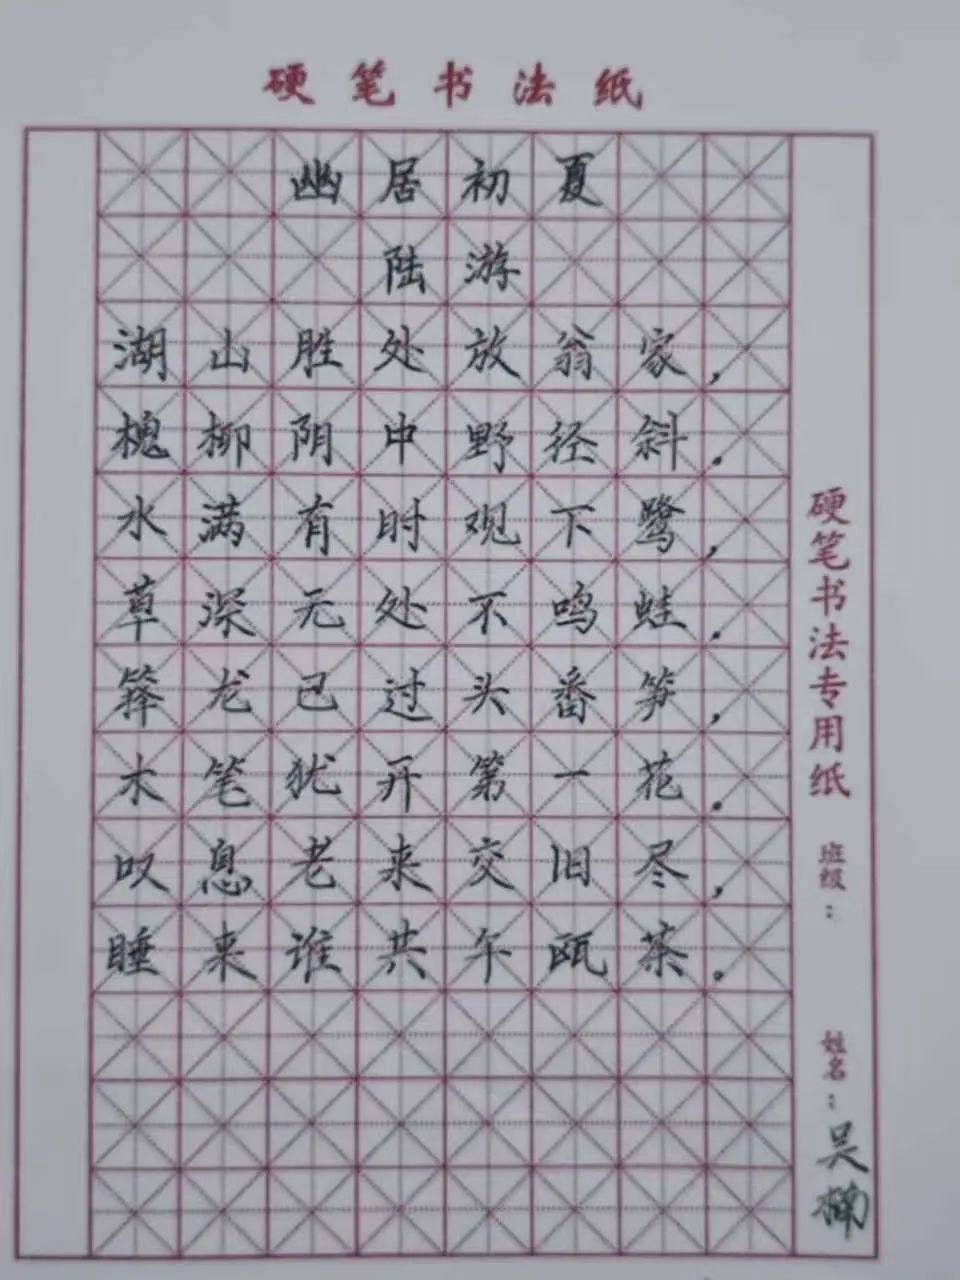 硬笔书法纸
幽居初夏
陆游
湖山胜处放翁家，
槐柳阴中野径斜．
水满有时观下鹭，
草深无处不鸣蛙．
箨龙已过头番笋，
木笔犹开第一花．
叹息老来交旧尽，
睡来谁共午瓯茶．
硬笔书法专用纸
班级：
姓名：吴楠